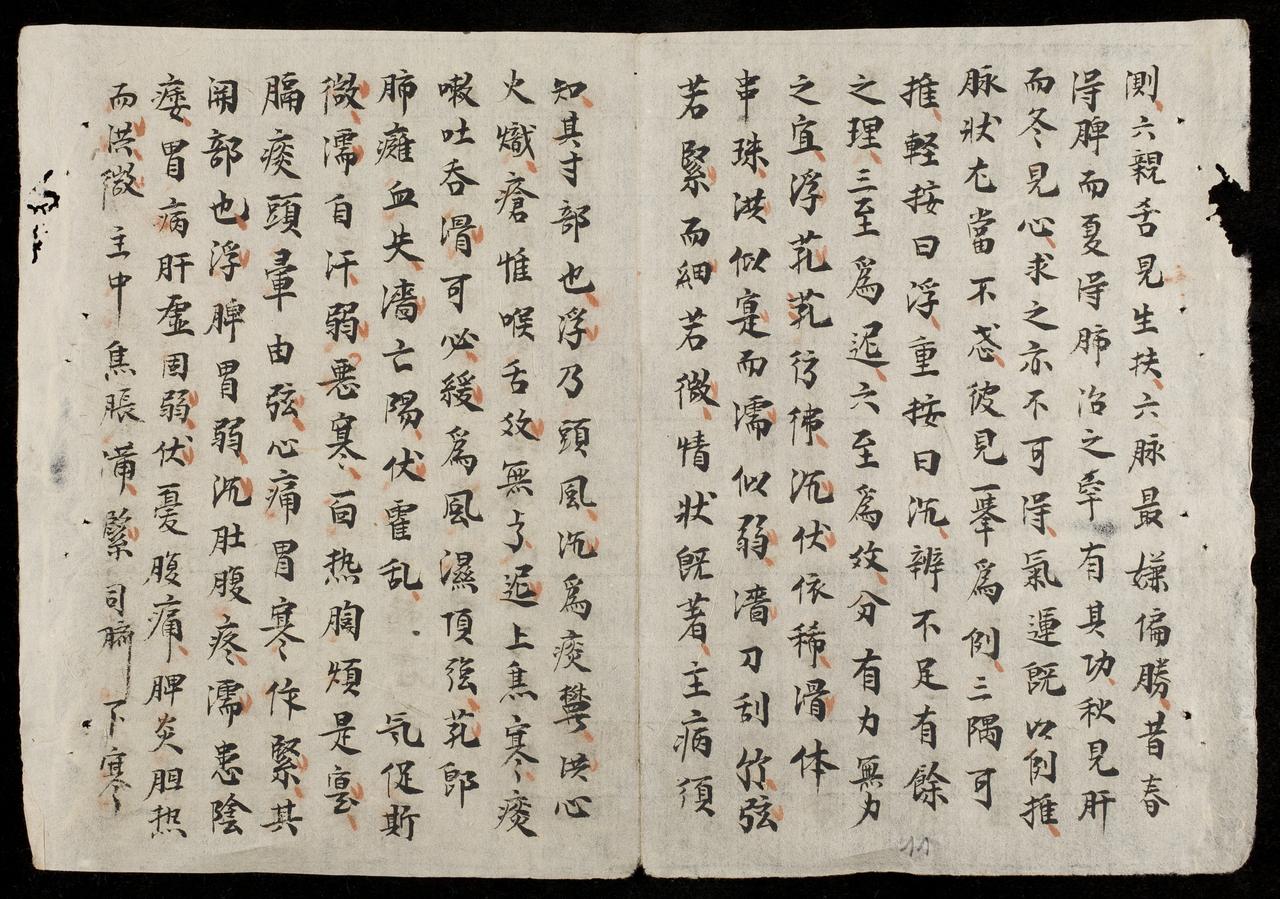 測六親舌見生扶六脉最嫌偏勝昔春
得脾而夏得肺治之牵有其功秋見肝
而冬見心求之亦不可得氣運既以例推
脉状尤當不忒彼見一舉為例三隅可
推軽按曰浮重按曰沉辨不足有餘
之理三至爲遲六至爲效分有力無力
之宜浮芤芤彷彿沉伏依稀滑体
串珠洪似寔而濡似弱濇刀刮竹弦
若緊而細若微情状既著主病須
知其寸部也浮乃頭風沉爲痰欝洪心
火熾瘡惟喉舌效無亏遲上焦寒痰
嗽吐吞滑可必緩爲風濕頂強芤郎
肺癰血失濇亡陽伏霍乱 气促斯
微濡自汗弱悪寒百热胸煩是寔
膈痰頭暈由弦心痛胃寒作緊其
開部也浮脾胃弱沉肚腹疼濡患陰
痿胃病肝虚因弱伏憂腹痛脾炎胆热
而洪微主中焦脹满緊司臍下寒